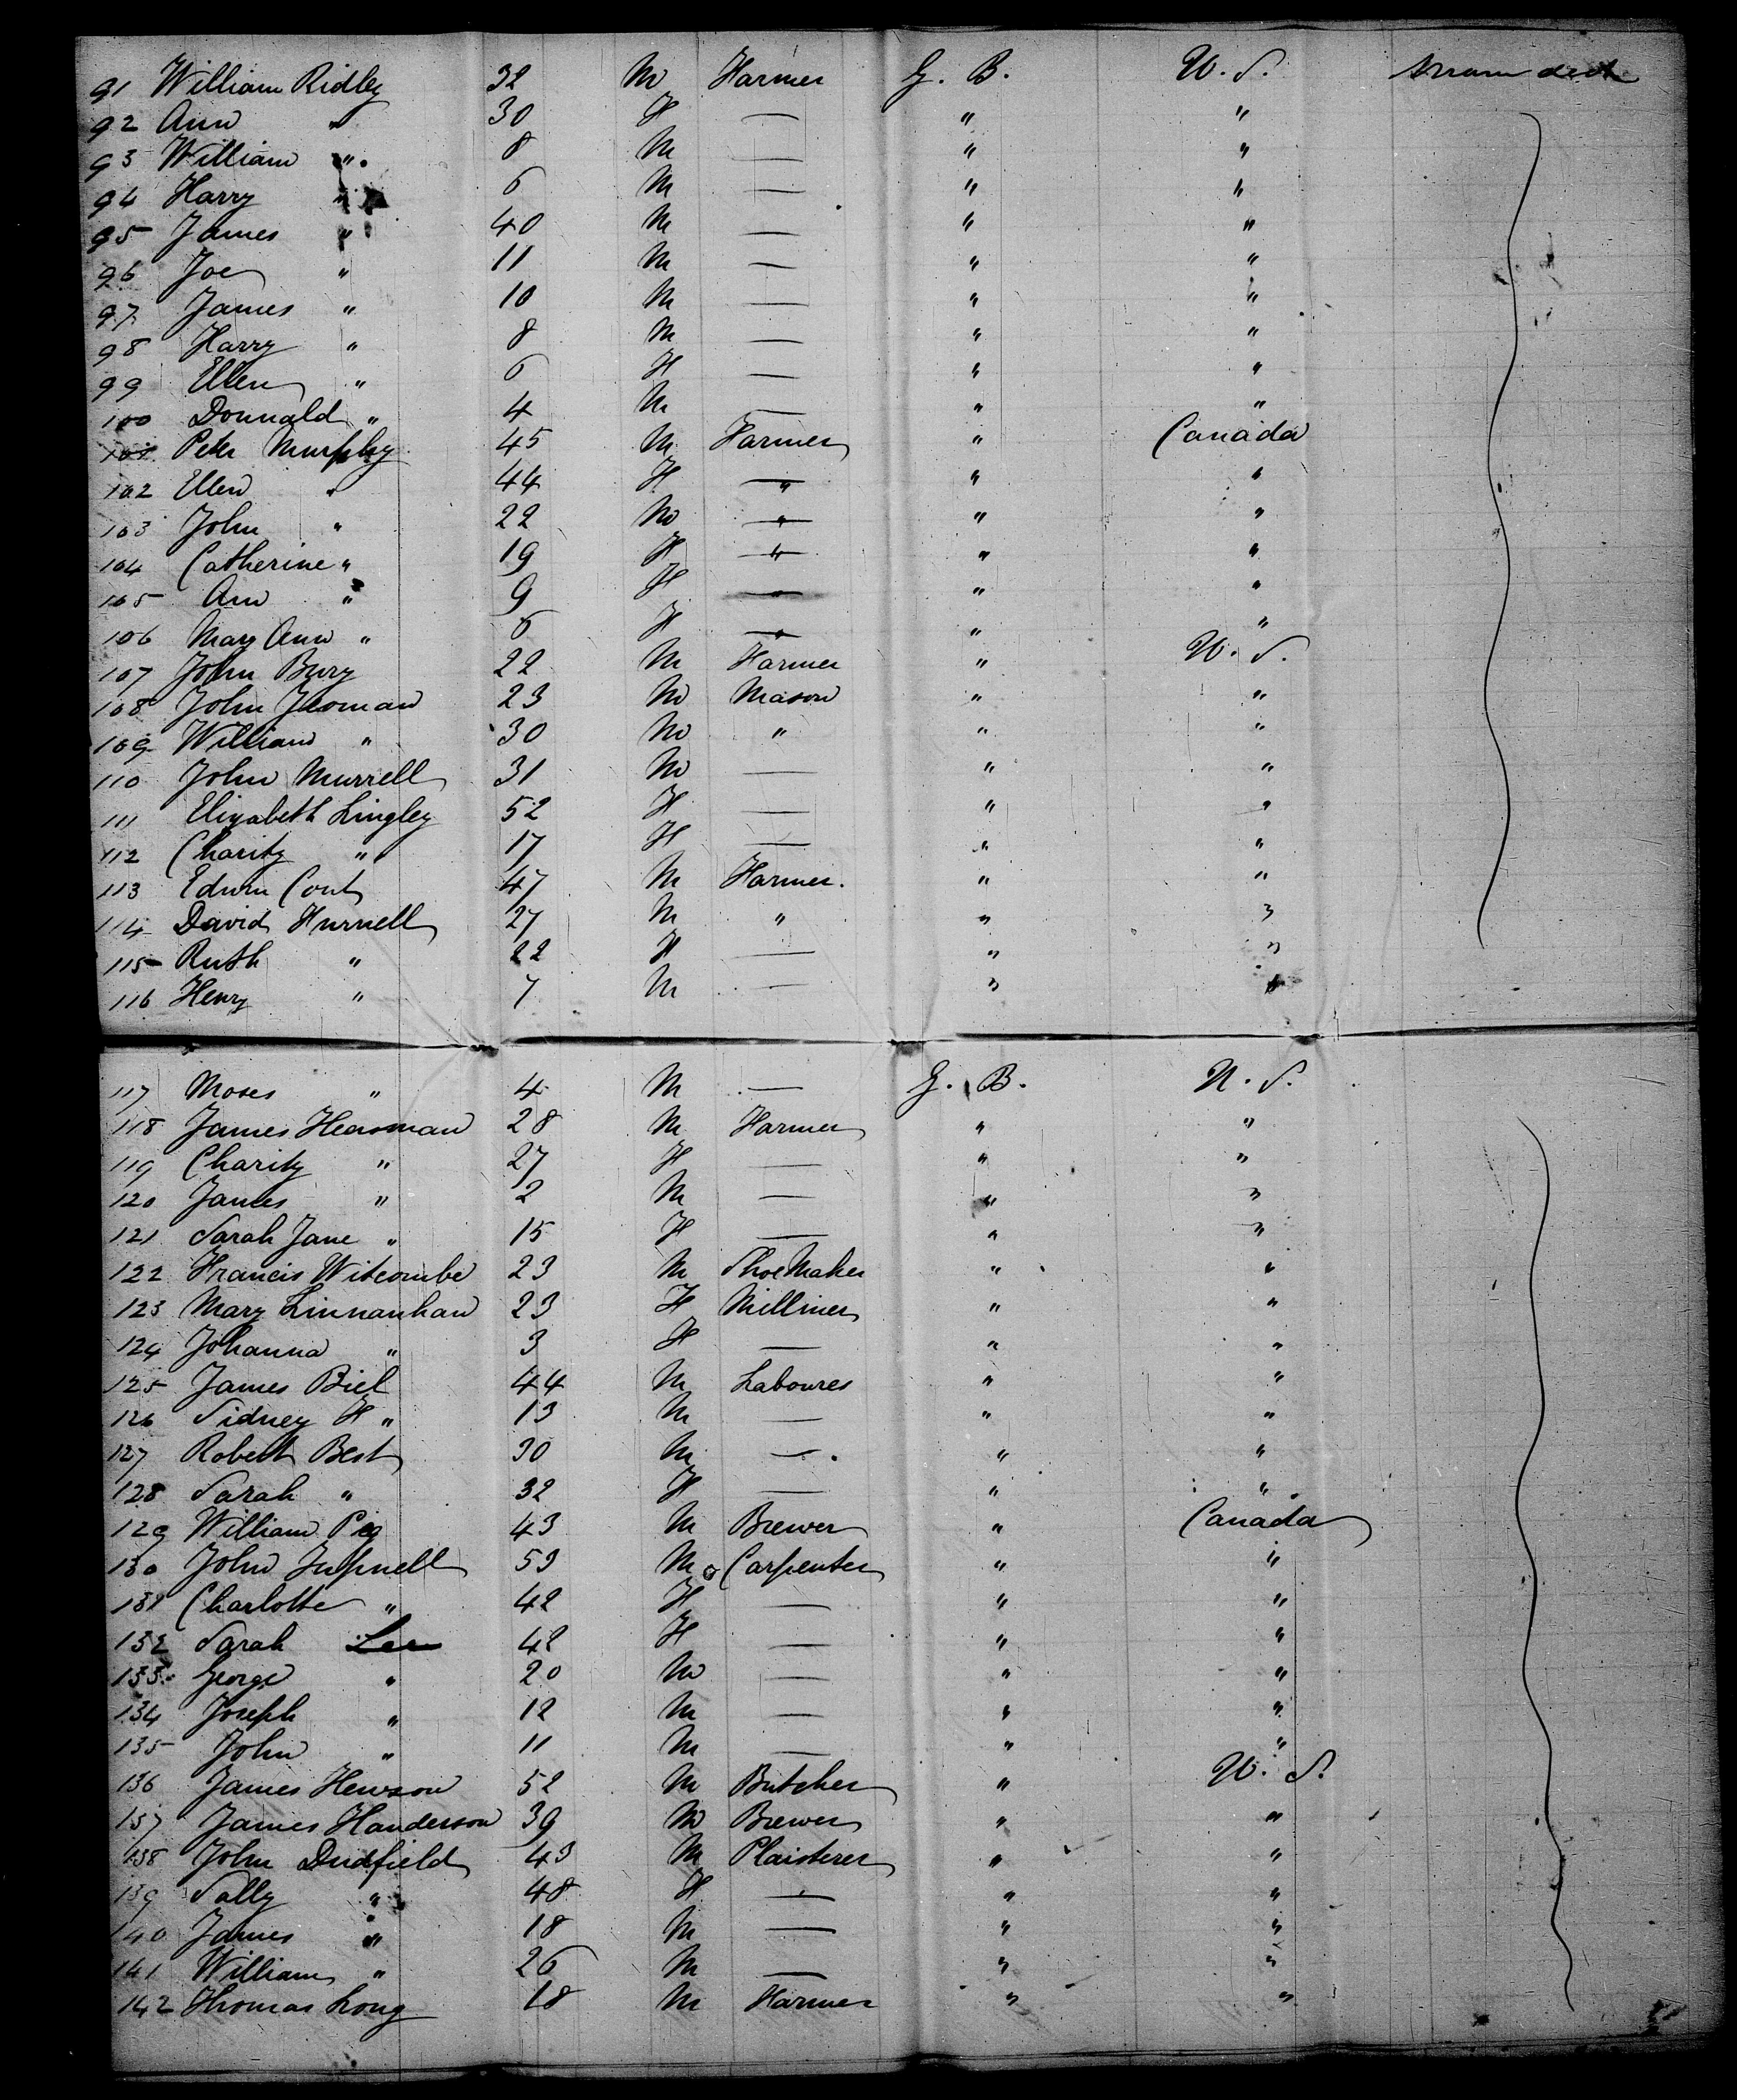 91 William Ridley 32 M Farmer G. B. U. S.
92 Ann " 30 F — " "
93 William " 8 M — " "
94 Harry " 6 M — " "
95 James " 40 M — " "
96 Joe " 11 M — " "
97 James " 10 M — " "
98 Harry " 8 M — " "
99 Ellen " 6 F — " "
100 Donnald " 4 M — " "
101 Peter Murphy 45 M Farmer " Canada
102 Ellen " 44 F " " "
103 John " 22 M " " "
104 Catherine " 19 F " " "
105 Ann " 9 F " " "
106 Mary Ann " 6 F " " "
107 John Bury 22 M Farmer " U. S.
108 John Yeoman 23 M Mason " "
109 William " 30 M " " "
110 John Murrell 31 M — " "
111 Elizabeth Lingley 52 F — " "
112 Charity " 17 F — " "
113 Edwin 47 M Farmer. " "
114 David Hurnell 27 M " " "
115 Ruth " 22 F — " "
116 Henry " 7 M — " "
117 Moses " 4 M — G. B. U. S.
118 James Heasman 28 M Farmer " "
119 Charity " 27 F — " "
120 James " 2 M — " "
121 Sarah Jane " 15 F — " "
122 Francis Witcombe 23 M Shoe Maker " "
123 Mary Linnanhan 23 F Milliner " "
124 Johanna " 3 F — " "
125 James Biel 44 M Labourer " "
126 Sidney H " 13 M — " "
127 Robert Best 30 M — " "
128 Sarah " 32 F — " "
129 William Peg 43 M Brewer " Canada
130 John 53 M Carpenter " "
131 Charlotte " 42 F — " "
132 Sarah Lee 42 F — " "
133 George " 20 M — " "
134 Joseph " 12 M — " "
135 John " 11 M — " "
136 James Hewson 52 M Butcher " U. S.
137 James Handerson 39 M Brewer " "
138 John Dudfield 43 M Plaisterer " "
139 Sally " 48 F — " "
140 James " 18 M — " "
141 William " 26 M — " "
142 Thomas Long 18 M Farmer " "